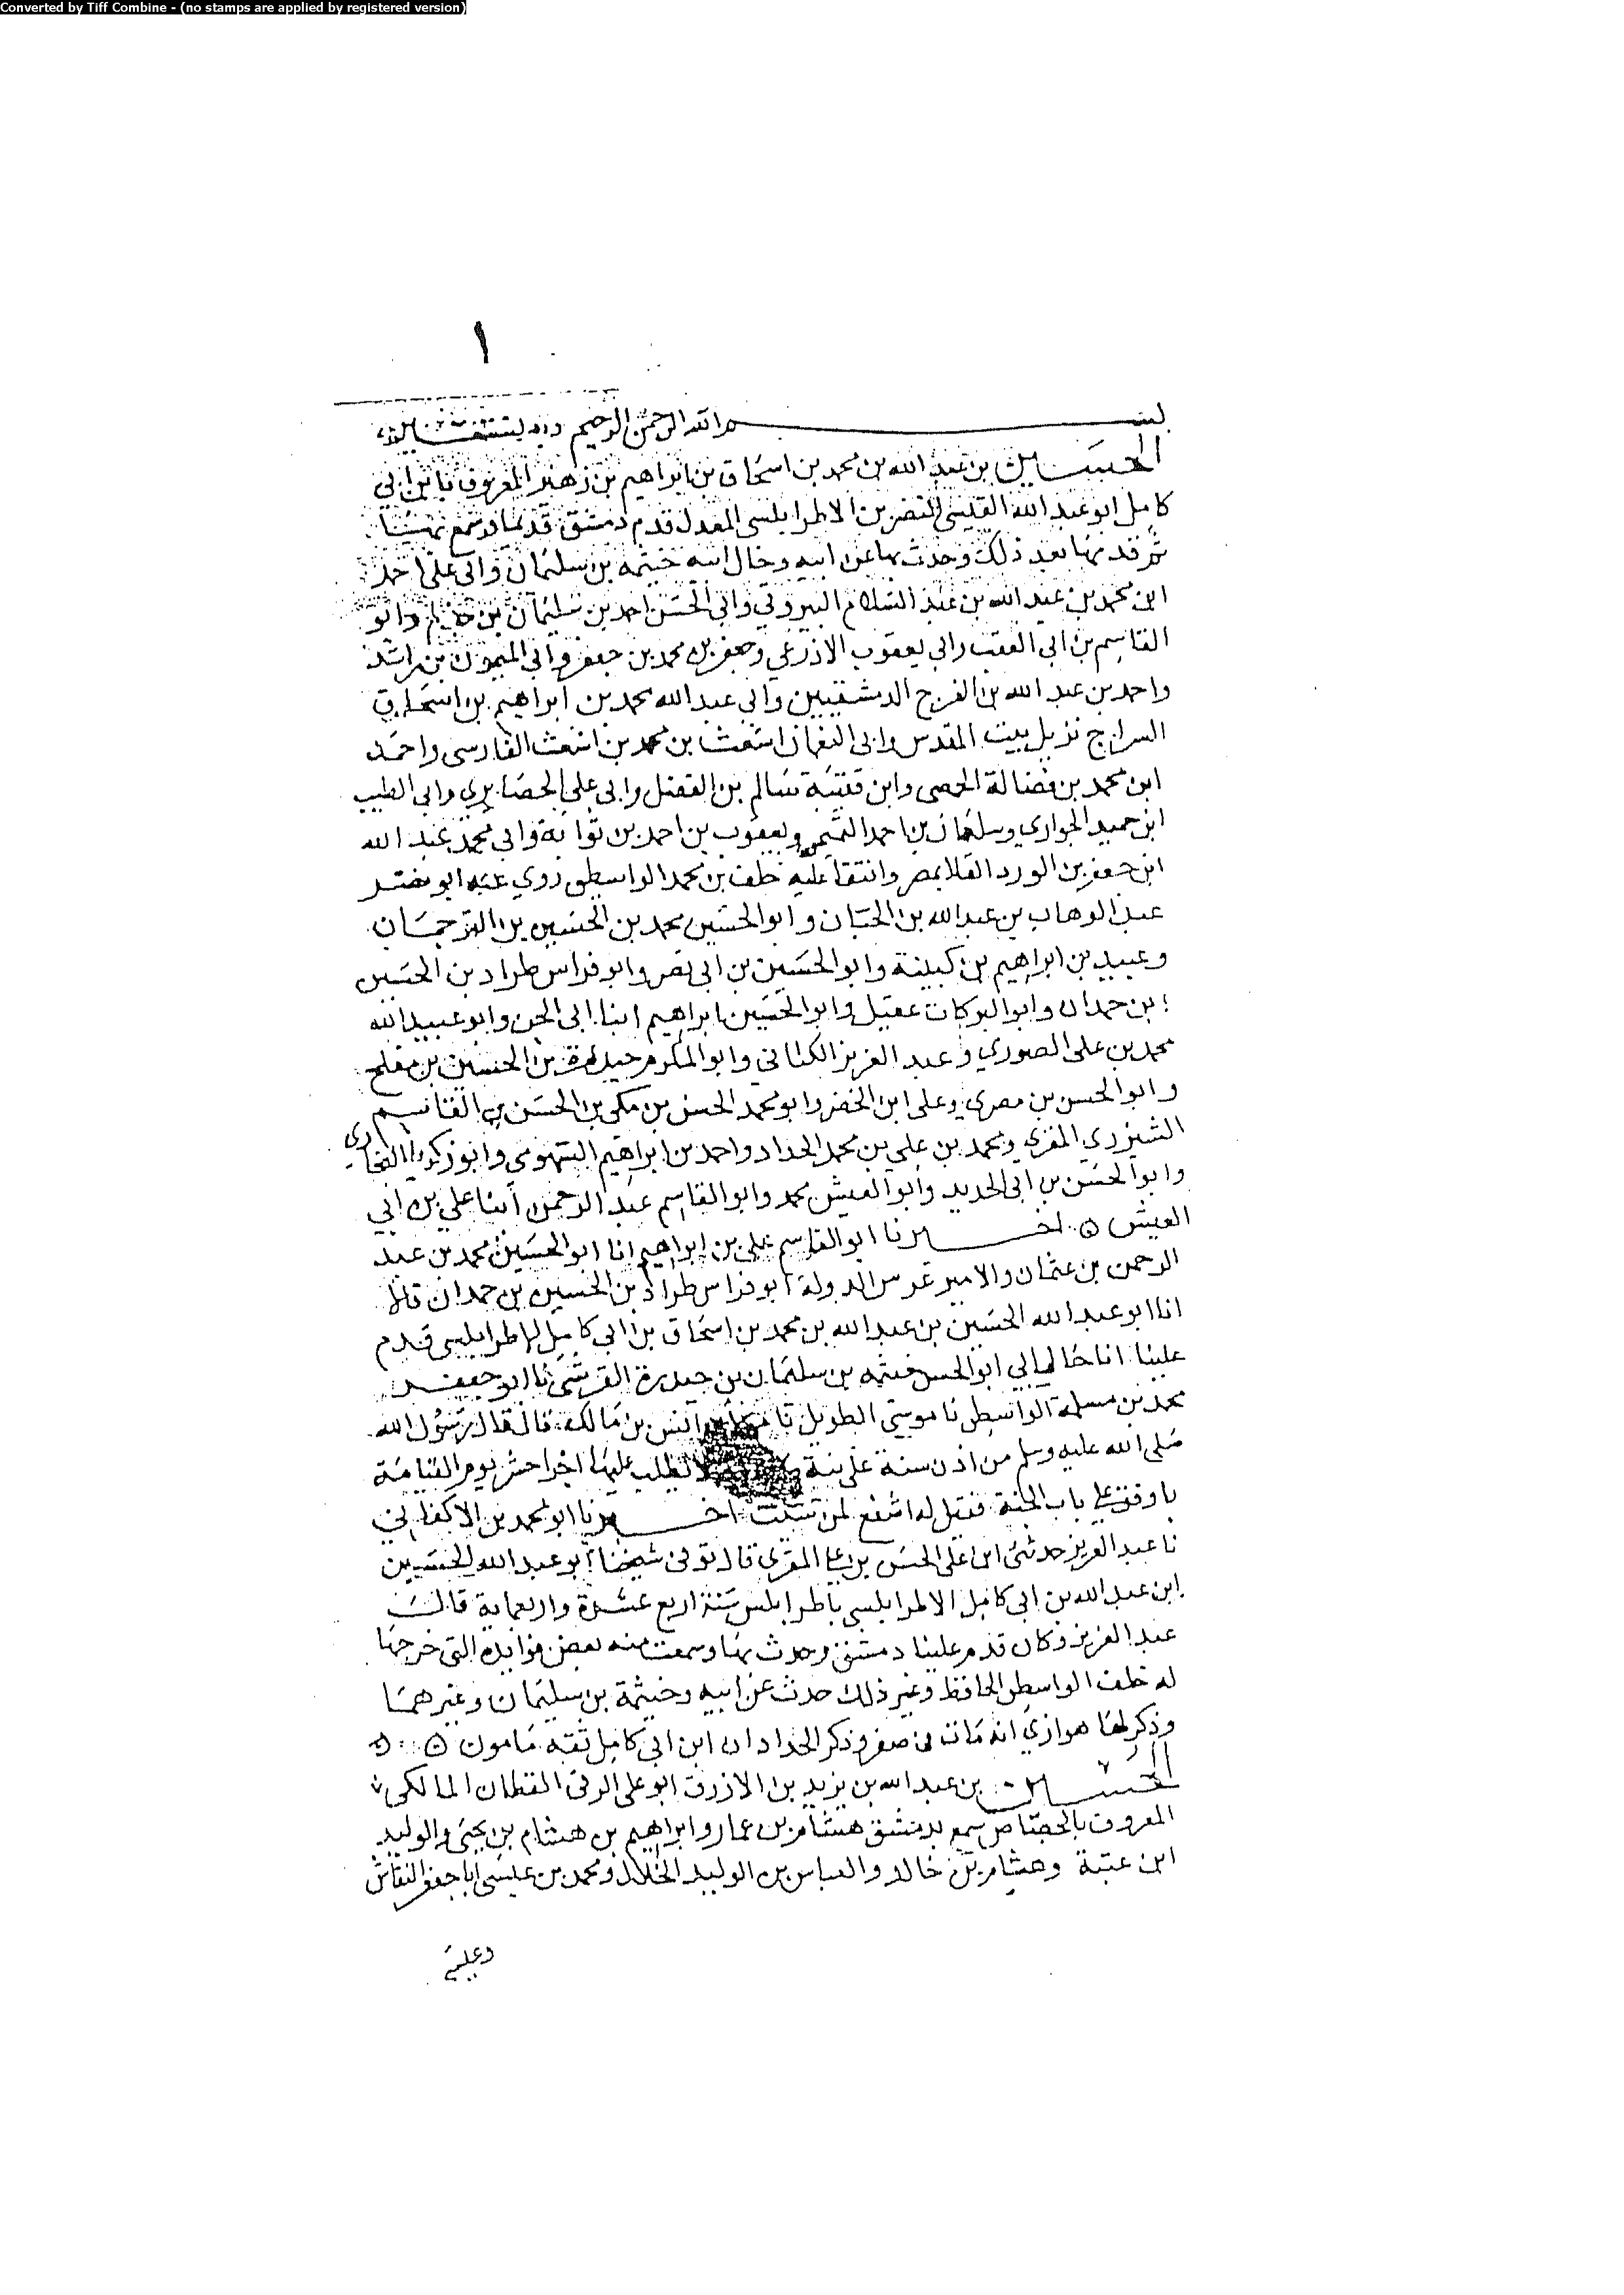 Converted by Tiff Combine - (no stamps are applied by registered version)
١
بسم الله الرحمن الرحيم وبه
الحسين بن عبد الله بن محمد بن اسحاق بن ابراهيم بن زهير المعروف بابن ابي
كامل ابو عبد الله القيسي الاطرابلسي المعدل قدم دمشق قديما وسمع بها
ثم قدمها بعد ذلك وحدث بها عن ابيه وخال ابيه خيثمة بن سليمان وابي علي احمد
ابن محمد بن عبد الله بن عبد السلام البيروتي وابي الحسن احمد بن سليمان بن حذيم وابو
القاسم بن ابي العقب وابي يعقوب الاذرعي وجعفر بن محمد بن جعفر وابي الميمون بن راشد
واحمد بن عبد الله بن الفرج الدمشقيين وابي عبد الله محمد بن ابراهيم بن اسحاق
السراج نزيل بيت المقدس وابي النعمان اشعث بن محمد بن اشعث الفارسي واحمد
ابن محمد بن فضالة الحمصي وابن قتيبة سالم بن الفضل وابي علي الحصايري وابي الطيب
ابن حميد الحواري وسليمان بن احمد ويعقوب بن احمد بن ثوابة وابي محمد عبد الله
ابن جعفر بن الورد بمصر وانتقا عليه خلف بن محمد الواسطي روي عنه ابو نصر
عبد الوهاب بن عبد الله بن الحبان وابو الحسين محمد بن الحسين بن الترجمان
وعبيد بن ابراهيم بن كبيبة وابو الحسين بن ابي نصر وابو فراس طراد بن الحسين
ابن حمدان وابو البركات عقيل وابو الحسين ابراهيم ابنا ابي الجن وابو عبيد الله
محمد بن علي الصوري وعبد العزيز الكتاني وابو المكرم حيدرة بن الحسين بن مفلح
وابو الحسن بن صصري وعلي ابن الخضر وابو محمد الحسن بن مكي بن الحسن بن القاسم
الشيزري المقري ومحمد بن علي بن محمد الحداد واحمد بن ابراهيم وابو زكريا البخاري
وابو الحسن بن ابي الحديد وابو العيش محمد وابو القاسم عبد الرحمن ابنا علي بن ابي
العيش ٥ اخبرنا ابو القاسم علي بن ابراهيم انا ابو الحسين محمد بن عبد
الرحمن بن عثمان والامير عرس الدولة ابو فراس طراد بن الحسين بن حمدان قالا
انا ابو عبد الله الحسين بن عبد الله بن محمد بن اسحاق بن ابي كامل الاطرابلسي قدم
علينا انا خال ابي ابو الحسن خيثمه بن سليمان بن حيدرة القرشي نا ابو جعفر
محمد بن مسلمة الواسطي نا موسى الطويل نا انس بن مالك قال قال رسول الله
صلى الله عليه وسلم من اذن سنة على نية لا يطلب عليها اجرا حشر يوم القيامة
فاوقف على باب الجنة فقيل له اشفع لمن شئت اخبرنا ابو محمد بن الاكفاني
نا عبد العزيز حدثني ابن علي الحسن بن علي المقري قال توفي شيخنا ابو عبد الله الحسين
ابن عبد الله بن ابي كامل الاطرابلسي باطرابلس سنة اربع عشرة واربعماية قال
عبد العزيز وكان قدم علينا دمشق وحدث بها وسمعت منه بعض فوايده التي خرجها
له خلف الواسطي الحافظ وغير ذلك حدث عن ابيه وخيثمة بن سليمان وغيرهما
وذكر انه مات في صفر وذكر الحداد ان ابن ابي كامل ثقه مامون ٥ ٥
الحسين بن عبد الله بن يزيد بن الازرق ابو علي الرقي القطان المالكي
المعروف بالجصاص سمع بدمشق هشام بن عمار وابراهيم بن هشام بن يحيى والوليد
ابن عتبة وهشام بن خالد والعباس بن الوليد الخلال ومحمد بن عيسى ابا جعفر النقاش
وعلي